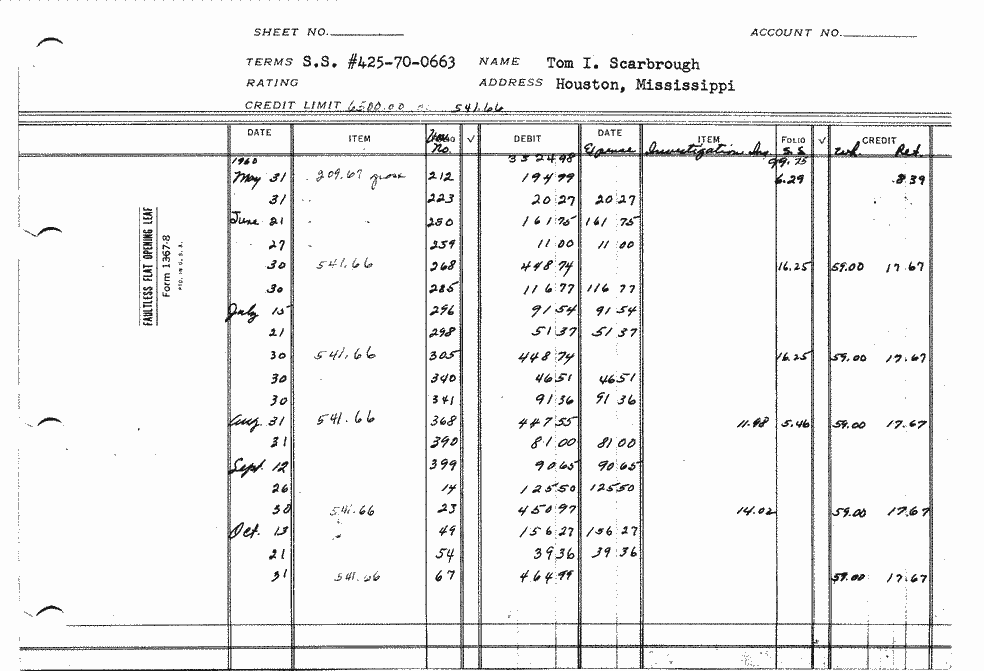 SHEET NO.
ACCOUNT NO.
TERMS S.S. #425-70-0663 NAME Tom I. Scarbrough
RATING ADDRESS Houston, Mississippi
CREDIT LIMIT 6500.00 541.66
DATE ITEM No. ✓ DEBIT DATE Expense ITEM Investigation Ins. FOLIO S.S ✓ CREDIT Wh. Ret.
1960 3324.98 99.75
May 31 209.67 gross 212 194 99 6.29 8 39
31 223 20 27 20 27
June 21 250 161 75 161 75
27 259 11 00 11 00
30 541.66 268 448 74 16.25 59.00 17.67
30 285 116 77 116 77
July 15 296 91 54 91 54
21 298 51 37 51 37
30 541.66 305 448 74 16.25 59.00 17.67
30 340 46 51 46 51
30 341 91 36 91 36
Aug. 31 541.66 368 447 55 11.98 5.46 59.00 17.67
31 390 81 00 81 00
Sept. 12 399 90 65 90 65
26 14 125 50 125 50
30 541.66 23 450 97 14.02 59.00 17.67
Oct. 13 49 156 27 156 27
21 54 39 36 39 36
31 541.66 67 464 99 59.00 17.67
FAULTLESS FLAT OPENING LEAF
Form 1367-8